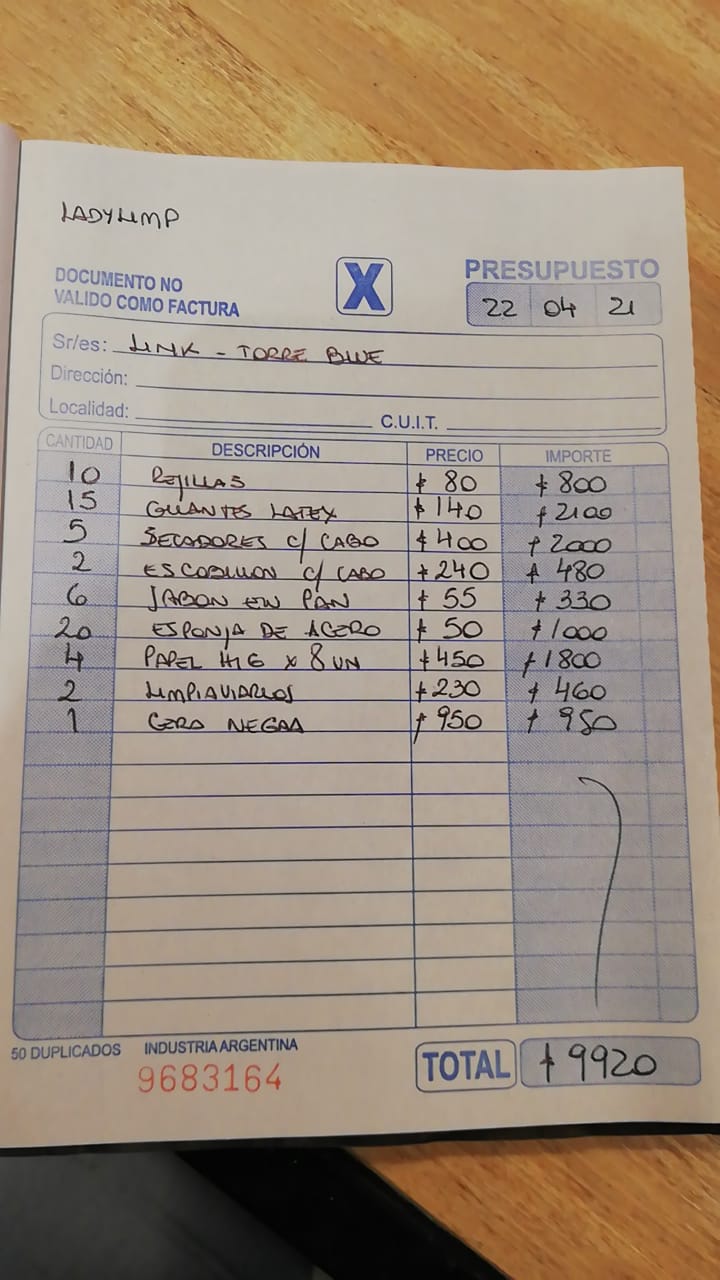 LADYLIMP
DOCUMENTO NO
VALIDO COMO FACTURA
X
PRESUPUESTO
22 04 21
Sr/es: LINK - TORRE BLUE
Dirección:
Localidad: C.U.I.T.
CANTIDAD DESCRIPCIÓN PRECIO IMPORTE
10 REJILLAS $ 80 $ 800
15 GUANTES LATEX $ 140 $ 2100
5 SECADORES C/ CABO $ 400 $ 2000
2 ESCOBILLON C/ CABO $ 240 $ 480
6 JABON EN PAN $ 55 $ 330
20 ESPONJA DE ACERO $ 50 $ 1000
4 PAPEL HIG X 8 UN $ 450 $ 1800
2 LIMPIAVIDRIOS $ 230 $ 460
1 CERA NEGRA $ 950 $ 950
50 DUPLICADOS INDUSTRIA ARGENTINA
9683164
TOTAL $ 9920